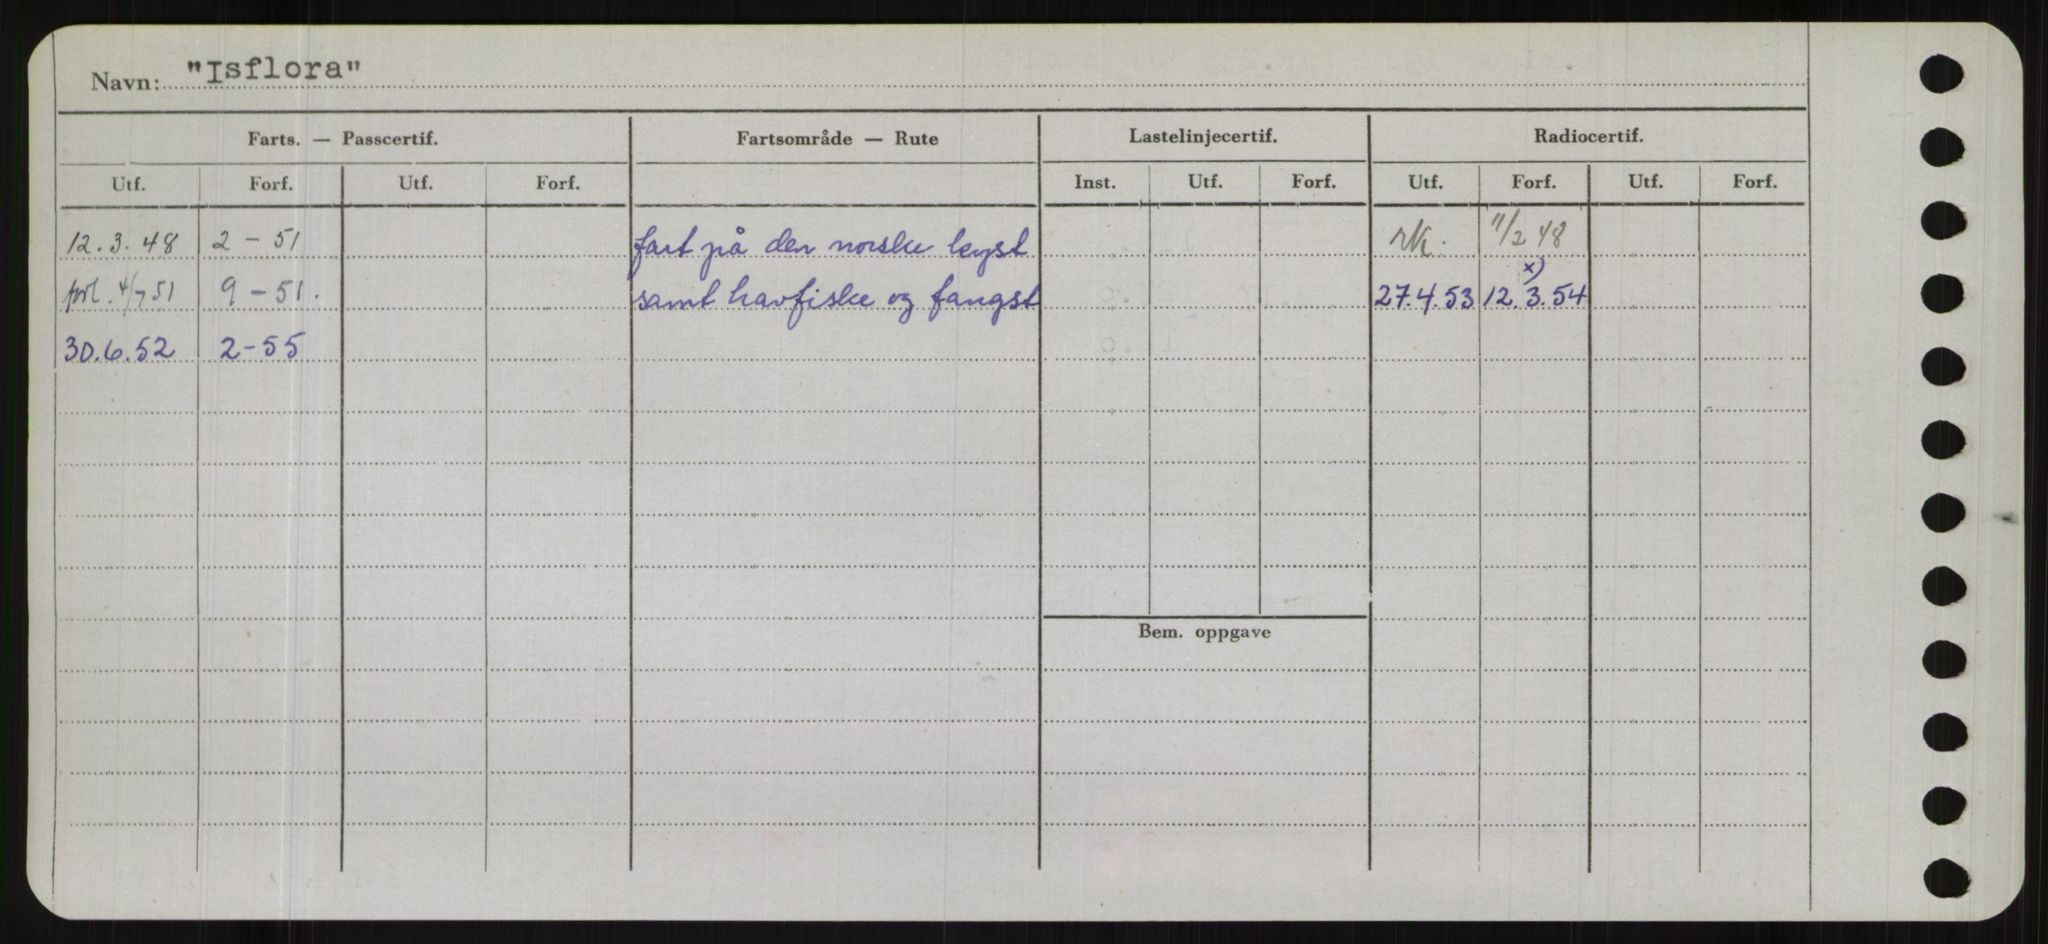 Navn: "Isflora"
Farts. — Passcertif. Fartsområde — Rute Lastelinjecertif. Radiocertif.
Utf. Forf. Utf. Forf. Inst. Utf. Forf. Utf. Forf. Utf. Forf.
12.3.48 2-51 fart på den norske kyst rk. 11/2 48
forl. 4/7 51 9-51. samt havfiske og fangst 27.4.53 12.3.54 x)
30.6.52 2-55
Bem. oppgave